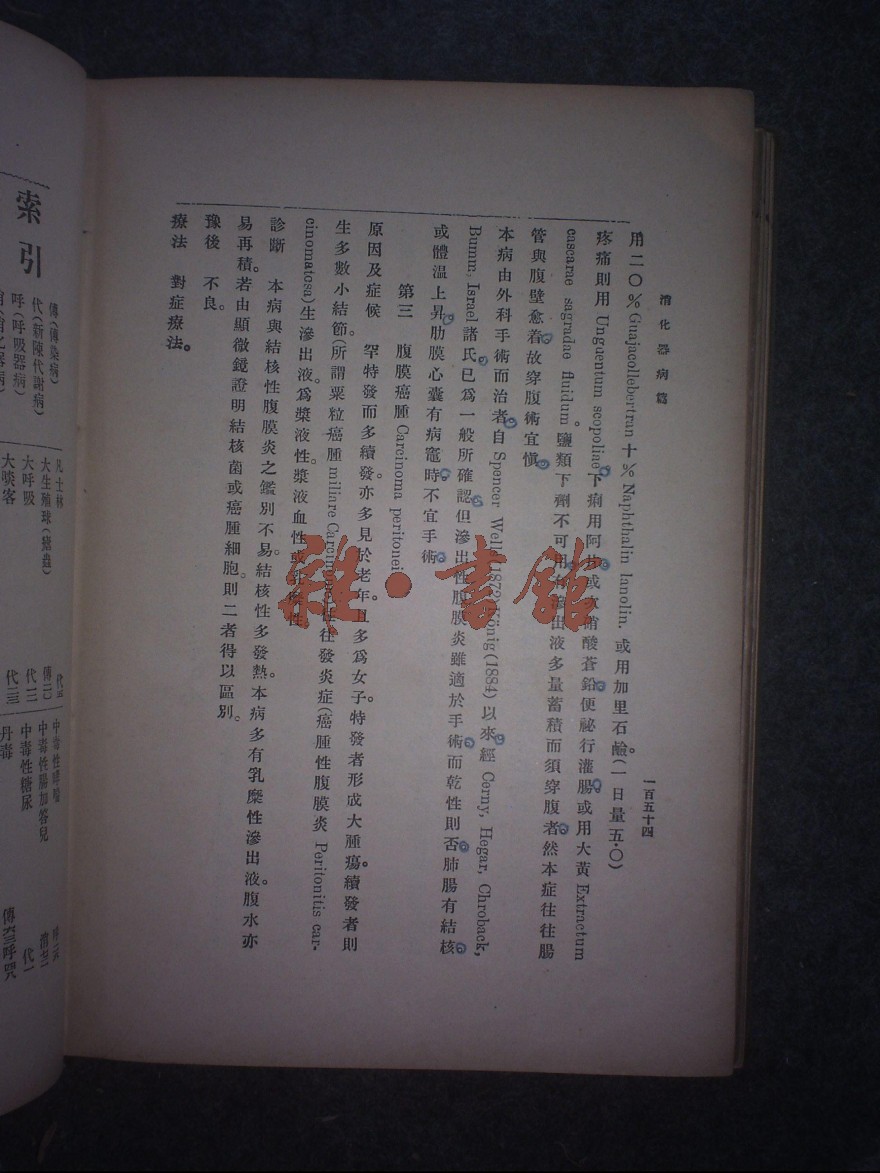 消化器病篇
一百五十四
用二〇%Guajacollebertran十%Naphthalin lanolin.或用加里石鹼(一日量五.〇)
疼痛則用Unguentum scopoliae下痢用阿片或次硝酸蒼鉛便祕行灌腸或用大黃Extractum
cascarae sagradae fluidum。鹽類下劑不可用有滲出液多量蓄積而須穿腹者然本症往往腸
管與腹壁愈着故穿腹術宜愼
本病由外科手術而治者自Spencer Well(1872)König(1884)以來經Cerny, Hegar, Chroback,
Bumm, Israel諸氏已爲一般所確認但滲出性腹膜炎雖適於手術而乾性則否肺腸有結核
或體溫上昇肋膜心囊有病竈時不宜手術
第三 腹膜癌腫Carcinoma peritonei
原因及症候 罕特發而多續發亦多見於老年。且多爲女子。特發者形成大腫瘍。續發者則
生多數小結節(所謂粟粒癌腫miliare Carcinome)往往發炎症(癌腫性腹膜炎Peritonitis car-
cinomatosa)生滲出液。爲漿液性。漿液血性或乳糜性
診斷 本病與結核性腹膜炎之鑑別不易。結核性多發熱。本病多有乳糜性滲出液。腹水亦
易再積。若由顯微鏡證明結核菌或癌腫細胞。則二者得以區別。
豫後 不良。
療法 對症療法。
索引
傳(傳染病)
代(新陳代謝病)
呼(呼吸器病)
凡士林
大生殖球(瘧蟲)
大呼吸
大啖客
傳二〇
代一三
代三三
中毒性腸加答兒
中毒性糖尿
丹毒
代一
雜·書館